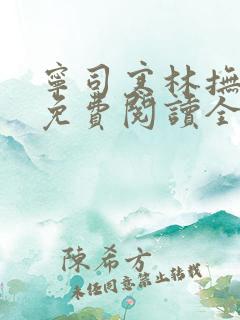 寧司寒林撫
免費閱讀全
陳希方
未經同意禁止轉載